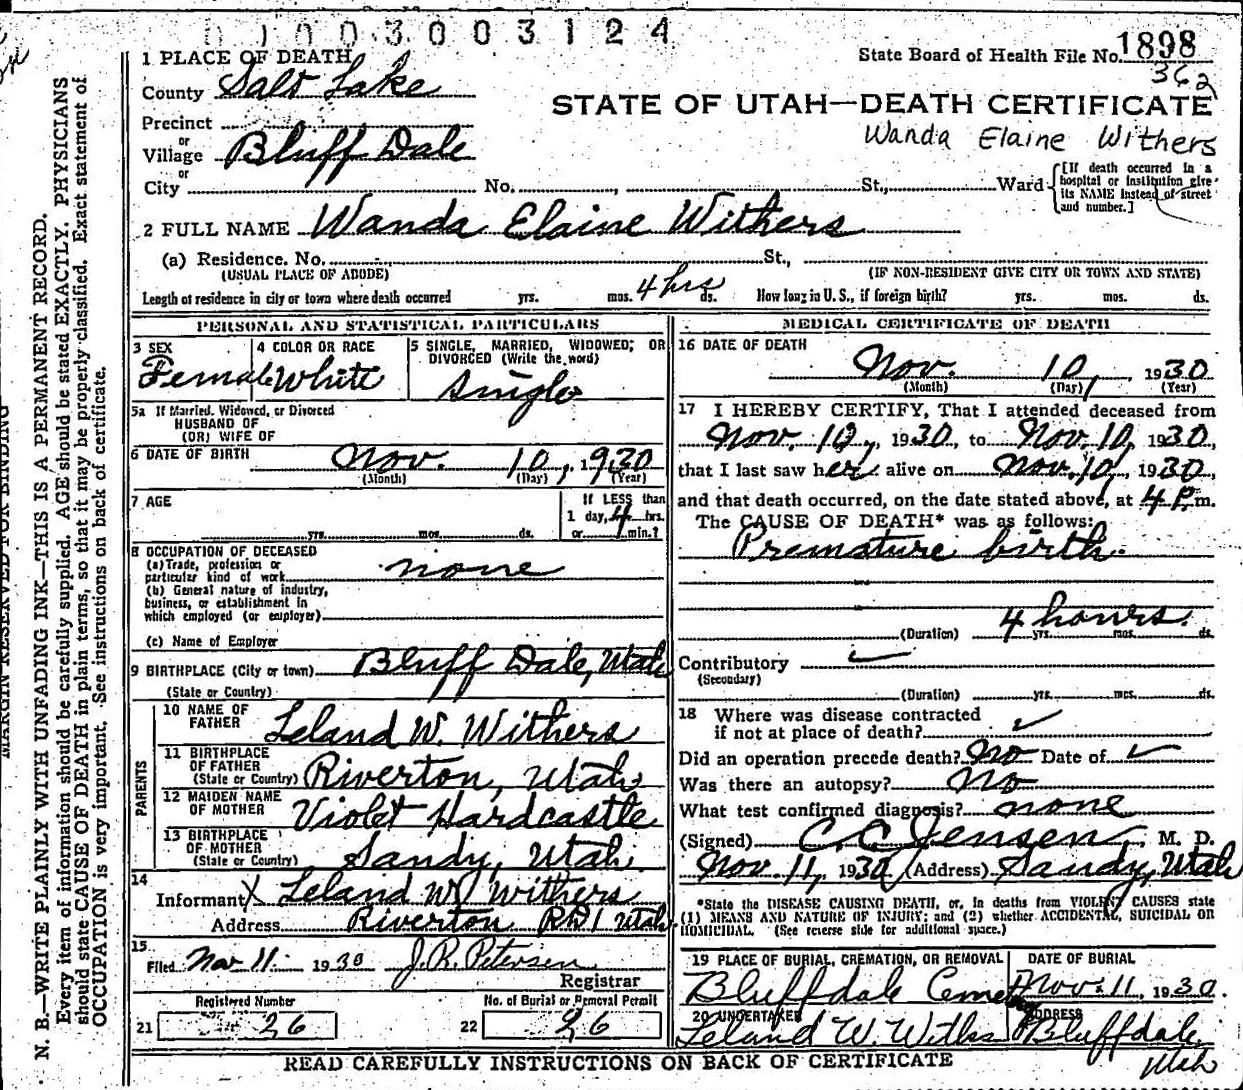 0 1 0 0 3 0 0 3 1 2 4
1 PLACE OF DEATH
State Board of Health File No. 1898
362
County Salt Lake
STATE OF UTAH—DEATH CERTIFICATE
Precinct
or
Wanda Elaine Withers
Village Bluff Dale
or
City No. , St., Ward
[If death occurred in a hospital or institution give its NAME instead of street and number.]
2 FULL NAME Wanda Elaine Withers
(a) Residence. No. St.,
(USUAL PLACE OF ABODE) (IF NON-RESIDENT GIVE CITY OR TOWN AND STATE)
Length of residence in city or town where death occurred yrs. mos. 4 hrs ds. How long in U. S., if foreign birth? yrs. mos. ds.
PERSONAL AND STATISTICAL PARTICULARS
3 SEX
Female
4 COLOR OR RACE
White
5 SINGLE, MARRIED, WIDOWED, OR
DIVORCED (Write the word)
Single
5a If Married, Widowed, or Divorced
HUSBAND OF
(OR) WIFE OF
6 DATE OF BIRTH Nov. 10, 1930
(Month) (Day) (Year)
7 AGE
yrs. mos. ds.
If LESS than
1 day, 4 hrs.
or min.?
8 OCCUPATION OF DECEASED
(a) Trade, profession or
particular kind of work none
(b) General nature of industry,
business, or establishment in
which employed (or employer)
(c) Name of Employer
9 BIRTHPLACE (City or town) Bluff Dale, Utah
(State or Country)
PARENTS
10 NAME OF
FATHER Leland W. Withers
11 BIRTHPLACE
OF FATHER
(State or Country) Riverton, Utah
12 MAIDEN NAME
OF MOTHER Violet Hardcastle
13 BIRTHPLACE
OF MOTHER
(State or Country) Sandy, Utah
14
Informant X Leland W Withers
Address Riverton RD1 Utah
15
Filed Nov 11 1930 J. R. Petersen
Registrar
Registered Number
21 26
No. of Burial or Removal Permit
22 26
MEDICAL CERTIFICATE OF DEATH
16 DATE OF DEATH
Nov. 10, 1930
(Month) (Day) (Year)
17 I HEREBY CERTIFY, That I attended deceased from
Nov. 10, 1930, to Nov. 10, 1930,
that I last saw her alive on Nov. 10, 1930
and that death occurred, on the date stated above, at 4 P.m.
The CAUSE OF DEATH* was as follows:
Premature birth.
4 hours.
(Duration) yrs. mos. ds.
Contributory ✓
(Secondary)
(Duration) yrs. mos. ds.
18 Where was disease contracted
if not at place of death? ✓
Did an operation precede death? No Date of ✓
Was there an autopsy? No
What test confirmed diagnosis? none
(Signed) C. C. Jensen, M. D.
Nov. 11, 1930 (Address) Sandy, Utah
*State the DISEASE CAUSING DEATH, or, in deaths from VIOLENT CAUSES state
(1) MEANS AND NATURE OF INJURY; and (2) whether ACCIDENTAL, SUICIDAL OR
HOMICIDAL. (See reverse side for additional space.)
19 PLACE OF BURIAL, CREMATION, OR REMOVAL
Bluffdale
DATE OF BURIAL
Nov. 11, 1930.
20 UNDERTAKER
Leland W. Withers
ADDRESS
Bluffdale,
Utah
READ CAREFULLY INSTRUCTIONS ON BACK OF CERTIFICATE
MARGIN RESERVED FOR BINDING
N. B.—WRITE PLAINLY WITH UNFADING INK—THIS IS A PERMANENT RECORD.
Every item of information should be carefully supplied. AGE should be stated EXACTLY. PHYSICIANS
should state CAUSE OF DEATH in plain terms, so that it may be properly classified. Exact statement of
OCCUPATION is very important. See instructions on back of certificate.